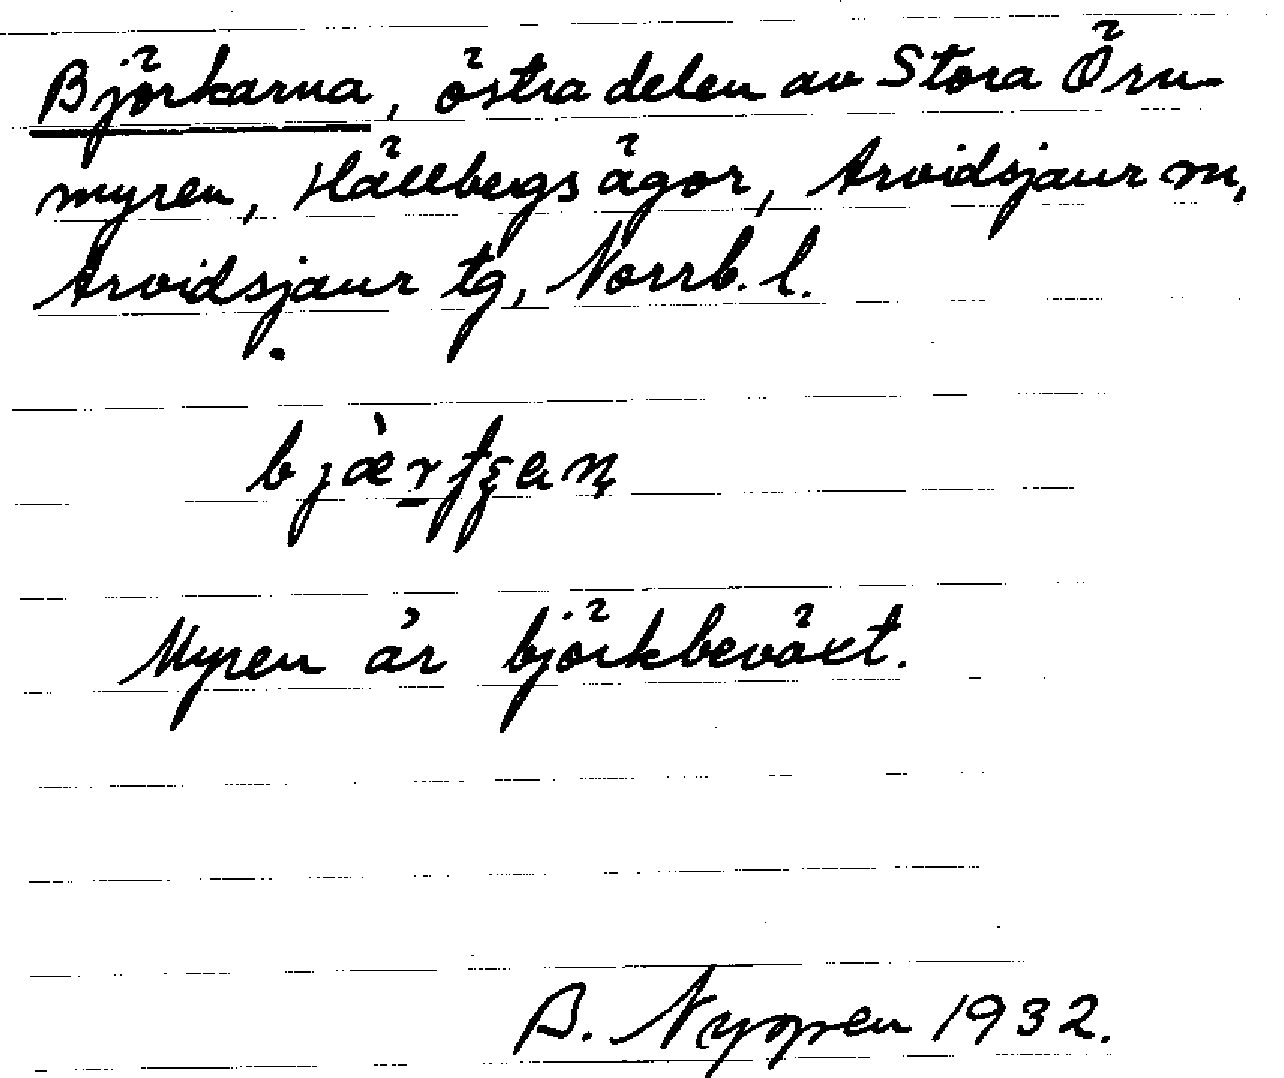 Björkarna, östra delen av Stora Örn-
myren, Hällbergs ägor, Arvidsjaur m,
Arvidsjaur tg, Norrb. l.
Myren är björkbeväxt.
B. Nygren 1932.